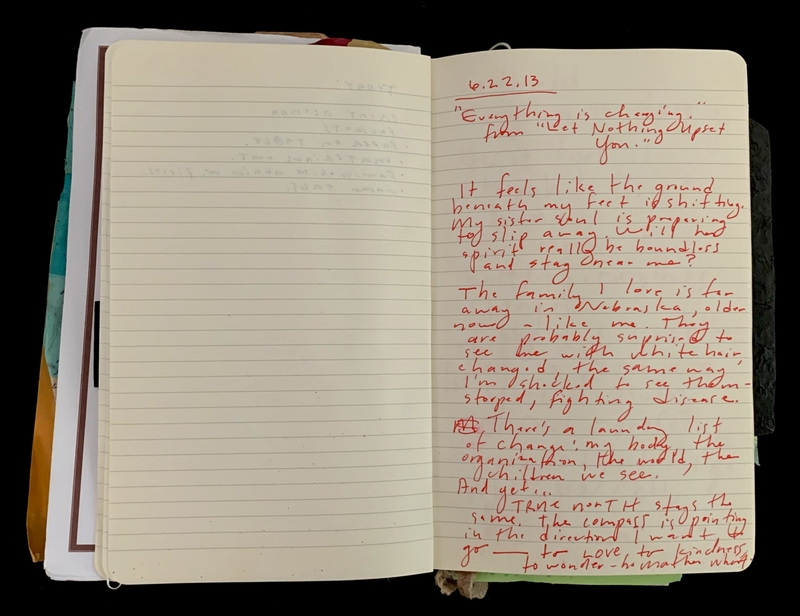 6.22.13
"Everything is changing."
from "Let Nothing Upset
You."
It feels like the ground
beneath my feet is shifting.
My sister soul is preparing
to slip away. Will her
spirit really be boundless
and stay near me?
The family I love is far
away in Nebraska, older
now - like me. They
are probably suprised to
see me with white hair,
changed, the same way
I'm shocked to see them -
stooped, fighting disease.
There's a laundry list
of change: my body, the
organization, the world, the
children we see.
And yet...
TRUE NORTH stays the
same. The compass is pointing
in the direction I want to
go — to love, to kindness,
to wonder - no matter what